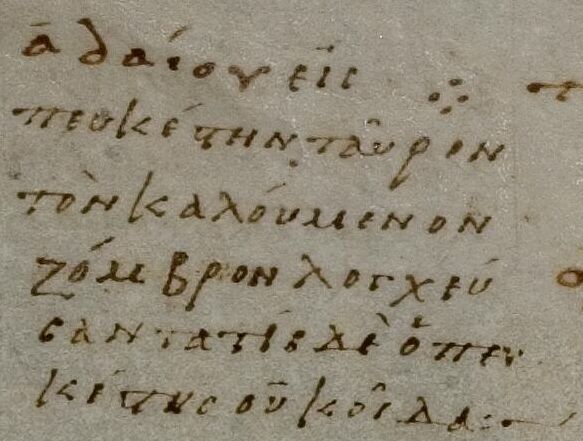 ἀδαίου εἰς
πευκέτην ταῦρον
τὸν καλούμενον
ζόμβρον λογχεύ
σαντα τίς δὲ ὁ πευ
κέτης οὐκ οἶδα